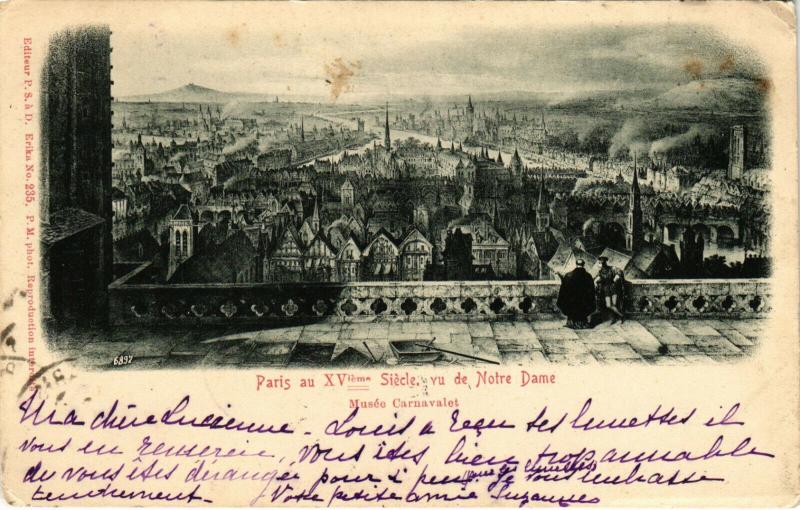 Editeur P. S. à D. Erika No. 235. P. M. phot. Reproduction
6892
Paris au XVIème Siècle, vu de Notre Dame
Musée Carnavalet
Ma chère Lucienne - Louis a reçu tes lunettes il
vous en remercie, vous êtes bien trop aimable
de vous être dérangée pour si peu. Je vous embrasse
tendrement - Votre petite amie Suzanne